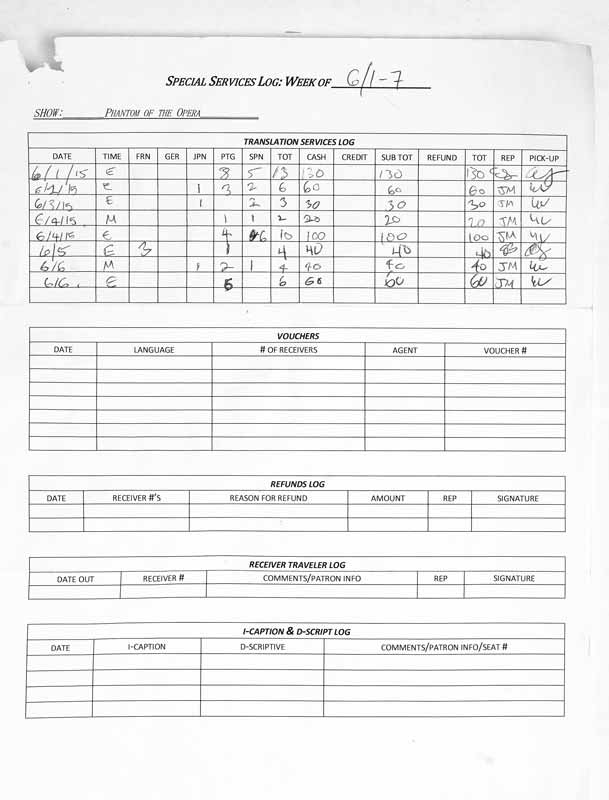 SPECIAL SERVICES LOG: WEEK OF 6/1-7
SHOW: PHANTOM OF THE OPERA
TRANSLATION SERVICES LOG
DATE TIME FRN GER JPN PTG SPN TOT CASH CREDIT SUB TOT REFUND TOT REP PICK-UP
6/1/15 E 8 5 13 130 130 130
6/2/15 E 1 3 2 6 60 60 60 JM
6/3/15 E 1 2 3 30 30 30 JM
6/4/15 M 1 1 2 20 20 20 JM
6/4/15 E 4 6 10 100 100 100 JM
6/5 E 3 1 4 40 40 40
6/6 M 1 2 1 4 40 40 40 JM
6/6 E 6 6 60 60 60 JM
VOUCHERS
DATE LANGUAGE # OF RECEIVERS AGENT VOUCHER #
REFUNDS LOG
DATE RECEIVER #'S REASON FOR REFUND AMOUNT REP SIGNATURE
RECEIVER TRAVELER LOG
DATE OUT RECEIVER # COMMENTS/PATRON INFO REP SIGNATURE
I-CAPTION & D-SCRIPT LOG
DATE I-CAPTION D-SCRIPTIVE COMMENTS/PATRON INFO/SEAT #